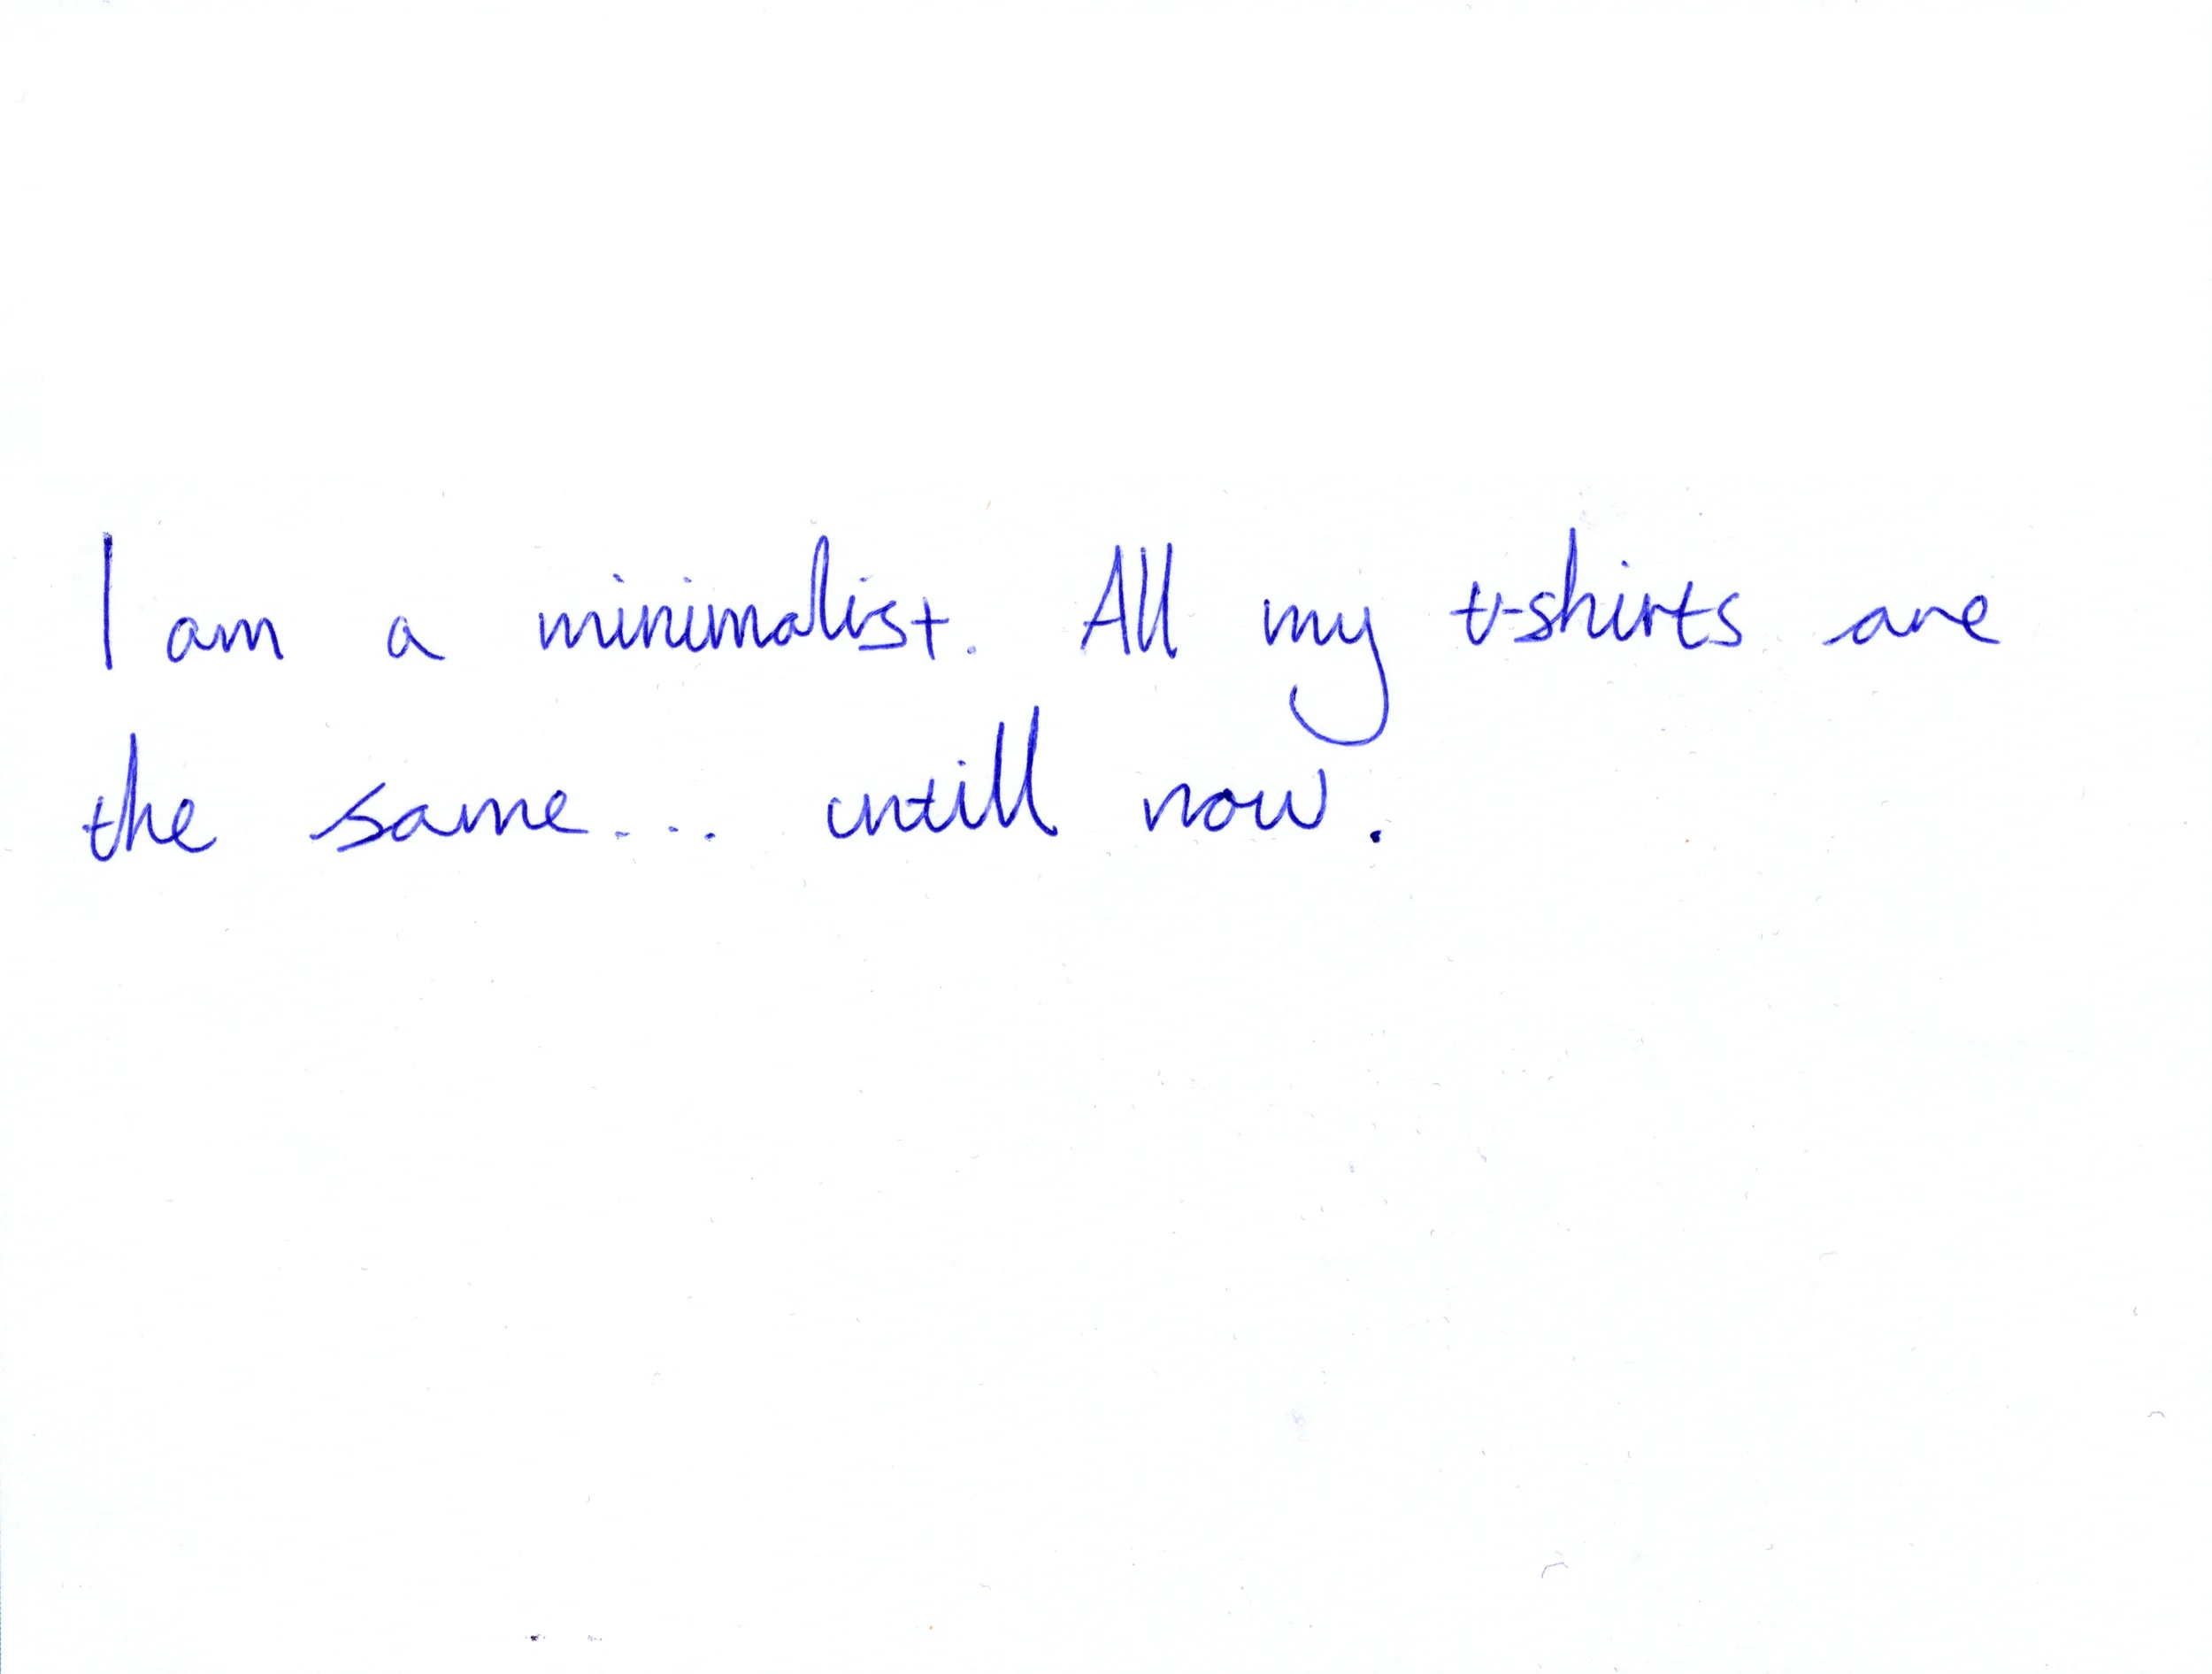 I am a minimalist. All my t-shirts are
the same... untill now.